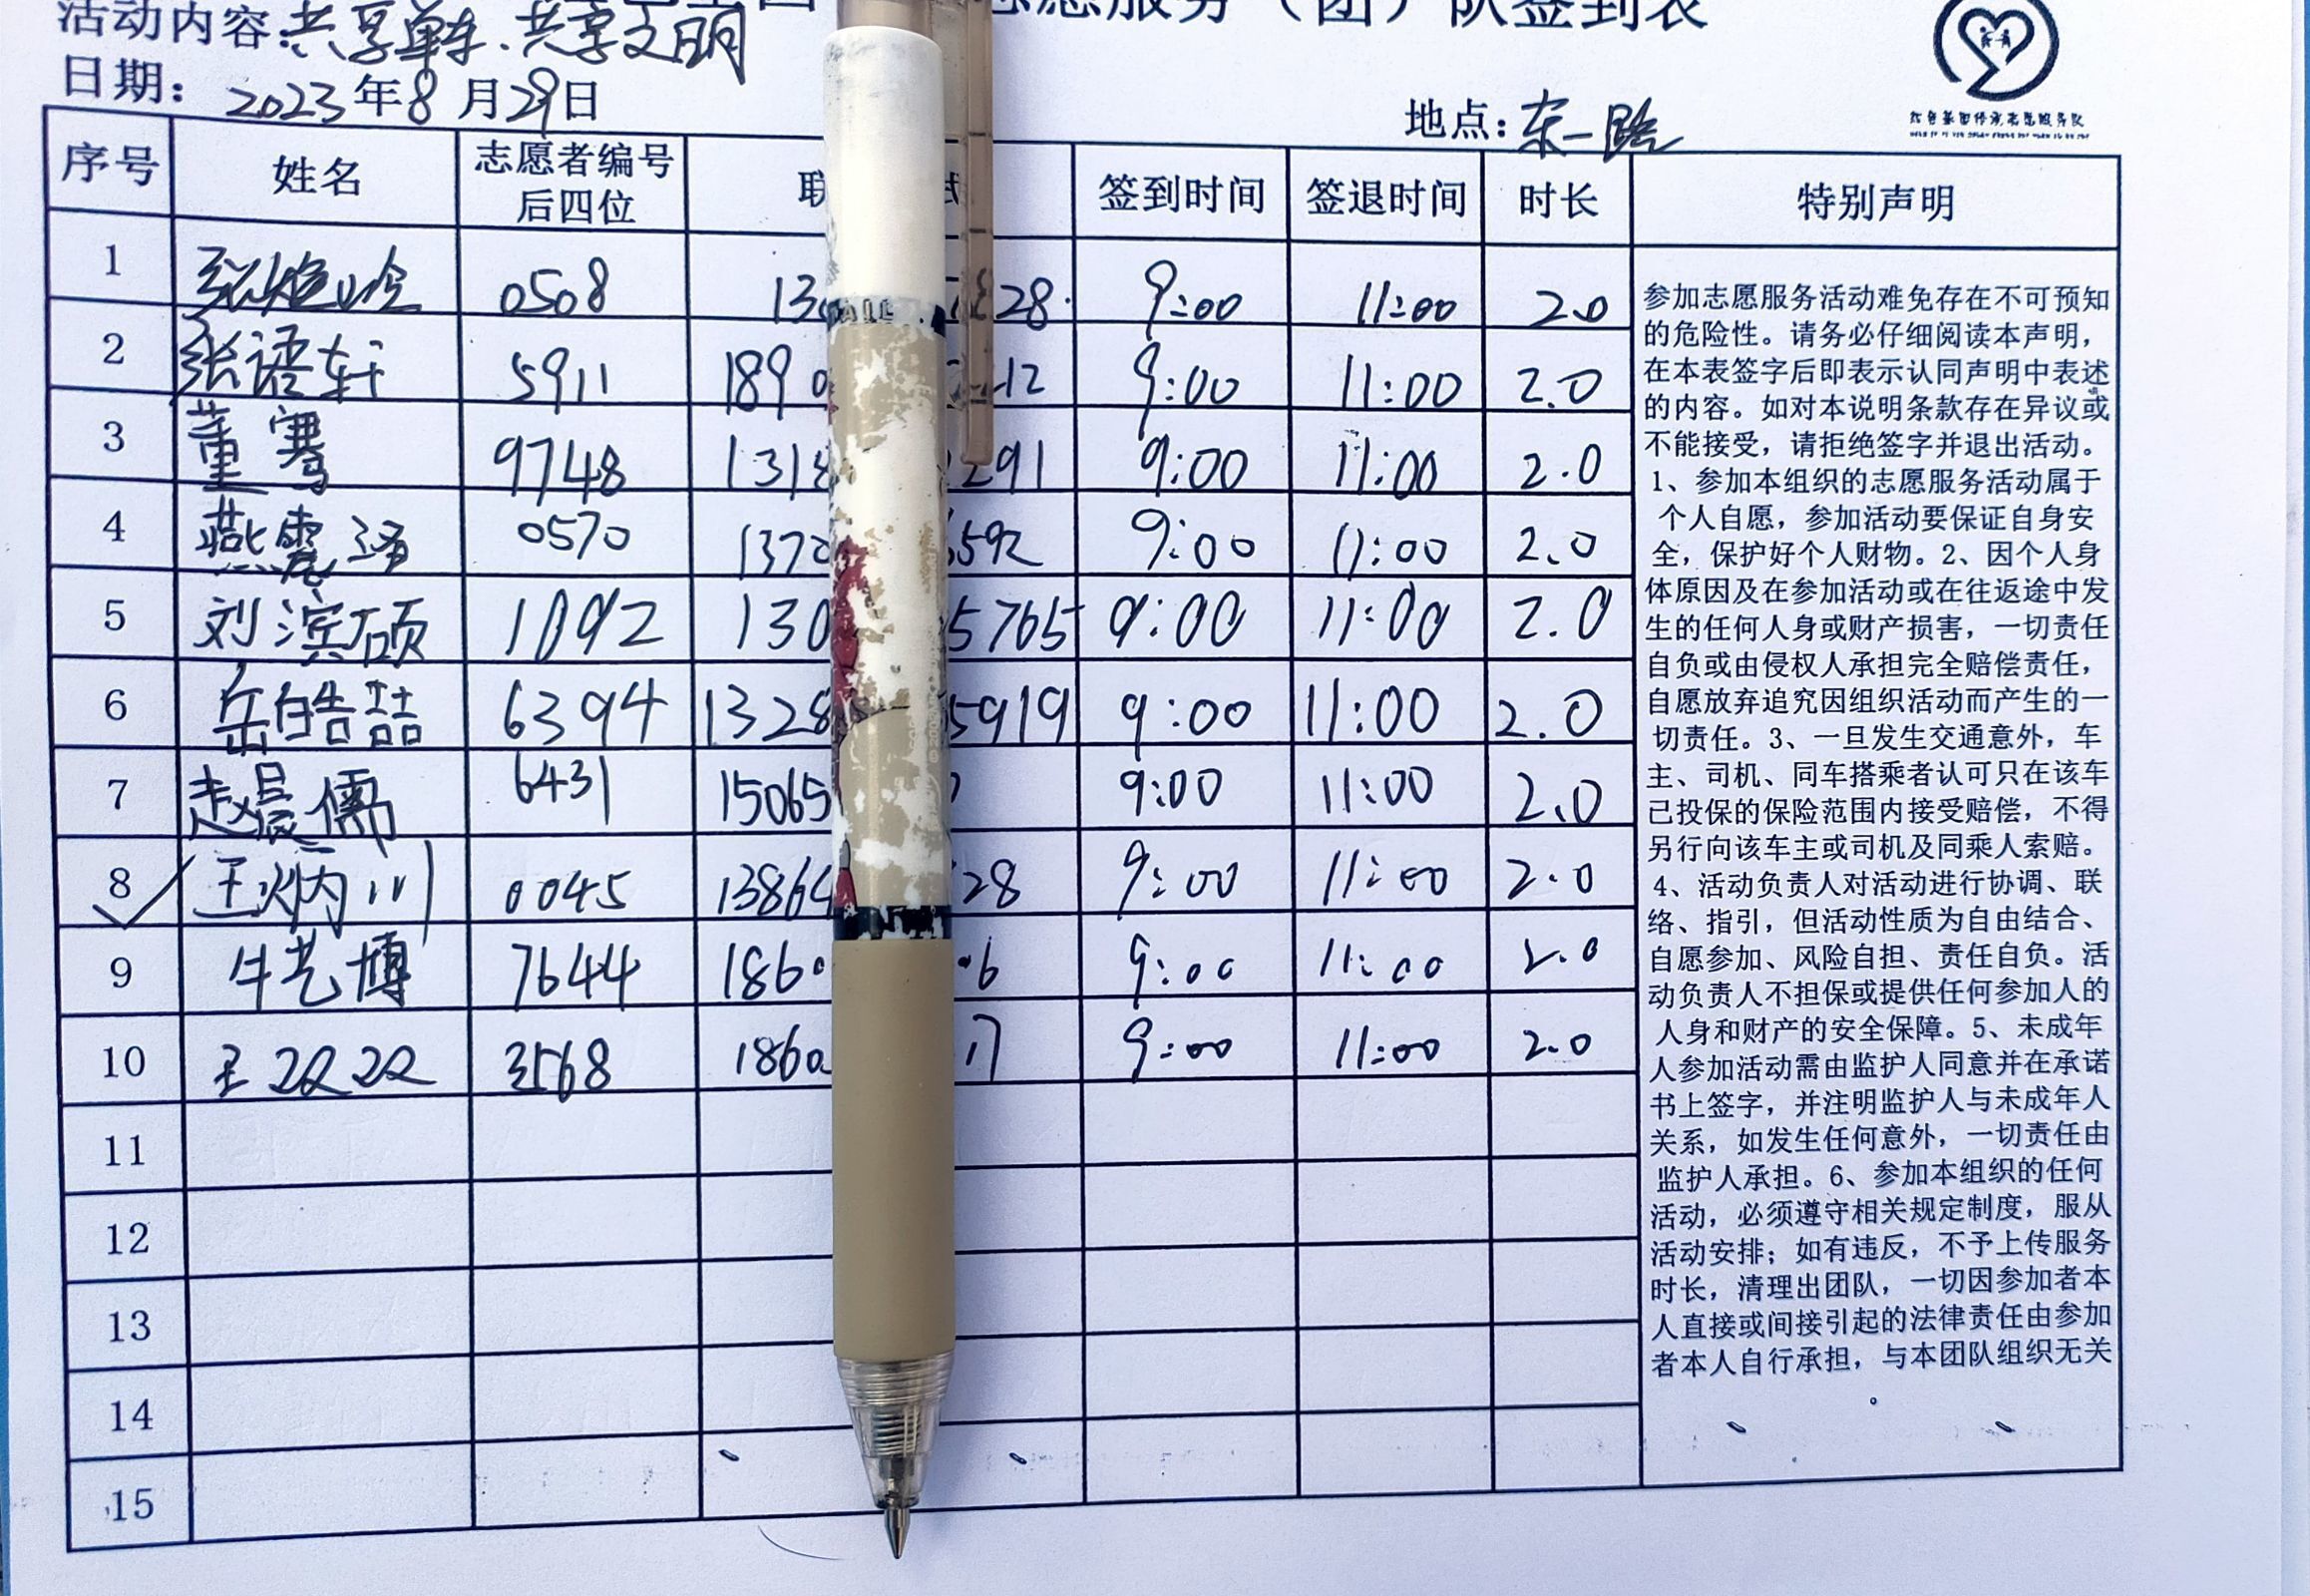 志愿服务（团）队签到表
活动内容：共享单车、共享文明
日期：2023年8月29日
地点：东一路
红色基因传承志愿服务队
序号 姓名 志愿者编号后四位 联 签到时间 签退时间 时长 特别声明
1 0508 13 28 9:00 11:00 2.0
2 张语轩 5911 1890 12 9:00 11:00 2.0
3 董骞 9748 1318 291 9:00 11:00 2.0
4 燕震 0570 1370 592 9:00 11:00 2.0
5 刘滨硕 1092 130 5765 9:00 11:00 2.0
6 岳皓喆 6394 1328 5919 9:00 11:00 2.0
7 赵晨儒 6431 15065 9:00 11:00 2.0
8 王炳川 0045 13864 28 9:00 11:00 2.0
9 牛艺博 7644 1860 6 9:00 11:00 2.0
10 王 3568 1860 17 9:00 11:00 2.0
11
12
13
14
15
参加志愿服务活动难免存在不可预知
的危险性。请务必仔细阅读本声明，
在本表签字后即表示认同声明中表述
的内容。如对本说明条款存在异议或
不能接受，请拒绝签字并退出活动。
1、参加本组织的志愿服务活动属于
个人自愿，参加活动要保证自身安
全，保护好个人财物。2、因个人身
体原因及在参加活动或在往返途中发
生的任何人身或财产损害，一切责任
自负或由侵权人承担完全赔偿责任，
自愿放弃追究因组织活动而产生的一
切责任。3、一旦发生交通意外，车
主、司机、同车搭乘者认可只在该车
已投保的保险范围内接受赔偿，不得
另行向该车主或司机及同乘人索赔。
4、活动负责人对活动进行协调、联
络、指引，但活动性质为自由结合、
自愿参加、风险自担、责任自负。活
动负责人不担保或提供任何参加人的
人身和财产的安全保障。5、未成年
人参加活动需由监护人同意并在承诺
书上签字，并注明监护人与未成年人
关系，如发生任何意外，一切责任由
监护人承担。6、参加本组织的任何
活动，必须遵守相关规定制度，服从
活动安排；如有违反，不予上传服务
时长，清理出团队，一切因参加者本
人直接或间接引起的法律责任由参加
者本人自行承担，与本团队组织无关
。